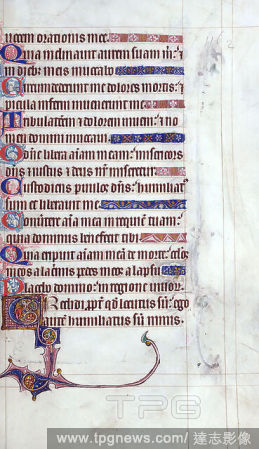 uocem orationis mee.
Quia inclinauit aurem suam m:
in dieb; meis inuocabo
Circumdederunt me dolores mortis:
pericula inferni inuenerunt me
Tribulationem & dolorem inueni: & no
men domini inuocaui.
O dñe libera aīam meam: misericors
dñs & iustus & deus nr̄ miseretur.
Custodiens paruulos dñs: humiliat'
sum et liberauit me.
Conuertere aīa mea in requiē tuam:
quia dominus benefecit tibi.
Quia eripuit aīam meā de morte: oclos
meos a lacrimis pedes meos a lapsu
Placebo domino: in regione uiuor.
Credidi, ppt̄ qđ locutus sū: ego
autē humiliatus sū nimis.
TPG
www.tpgnews.com/達志影像